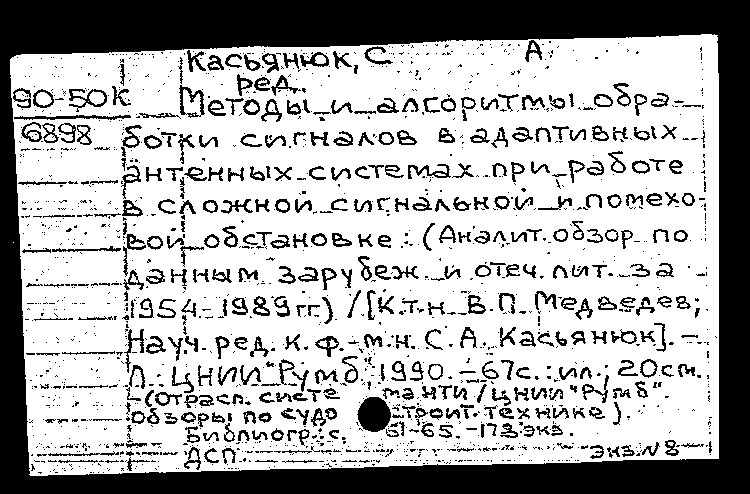 Касьянюк, С А
ред.
90-50К Методы и алгоритмы обра-
6898 ботки сигналов в адаптивных
антенных системах при работе
в сложной сигнальной и помехо-
вой обстановке: (Аналит. обзор по
данным зарубеж и отеч. лит. за
1954-1989 гг.) / [К.т.н. В.П. Медведев;
Науч. ред. к. ф.-м.н. С.А. Касьянюк]. –
Л.: ЦНИИ "Румб", 1990. – 67с.: ил.; 20см.
– (Отрасл. систе ма НТИ / ЦНИИ "Румб".
Обзоры по судо строит. технике).
Библиогр.: с. 61-65. – 173 экз.
ДСП. экз. N 8